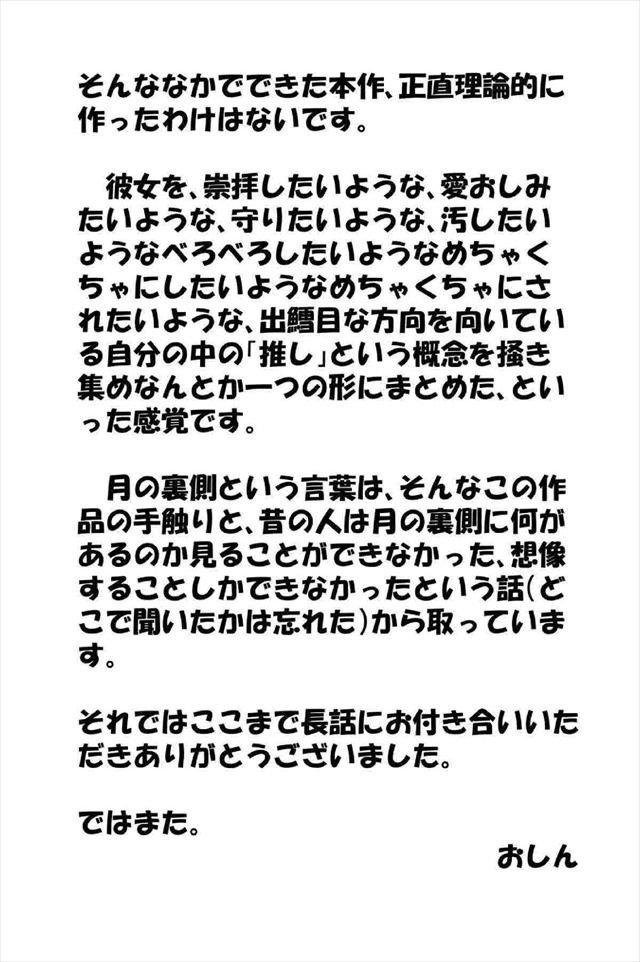 そんななかでできた本作、正直理論的に
作ったわけはないです。
彼女を、崇拝したいような、愛おしみ
たいような、守りたいような、汚したい
ようなべろべろしたいようなめちゃく
ちゃにしたいようなめちゃくちゃにさ
れたいような、出鱈目な方向を向いてい
る自分の中の「推し」という概念を掻き
集めなんとか一つの形にまとめた、とい
った感覚です。
月の裏側という言葉は、そんなこの作
品の手触りと、昔の人は月の裏側に何が
あるのか見ることができなかった、想像
することしかできなかったという話(ど
こで聞いたかは忘れた)から取っていま
す。
それではここまで長話にお付き合いいた
だきありがとうございました。
ではまた。
おしん